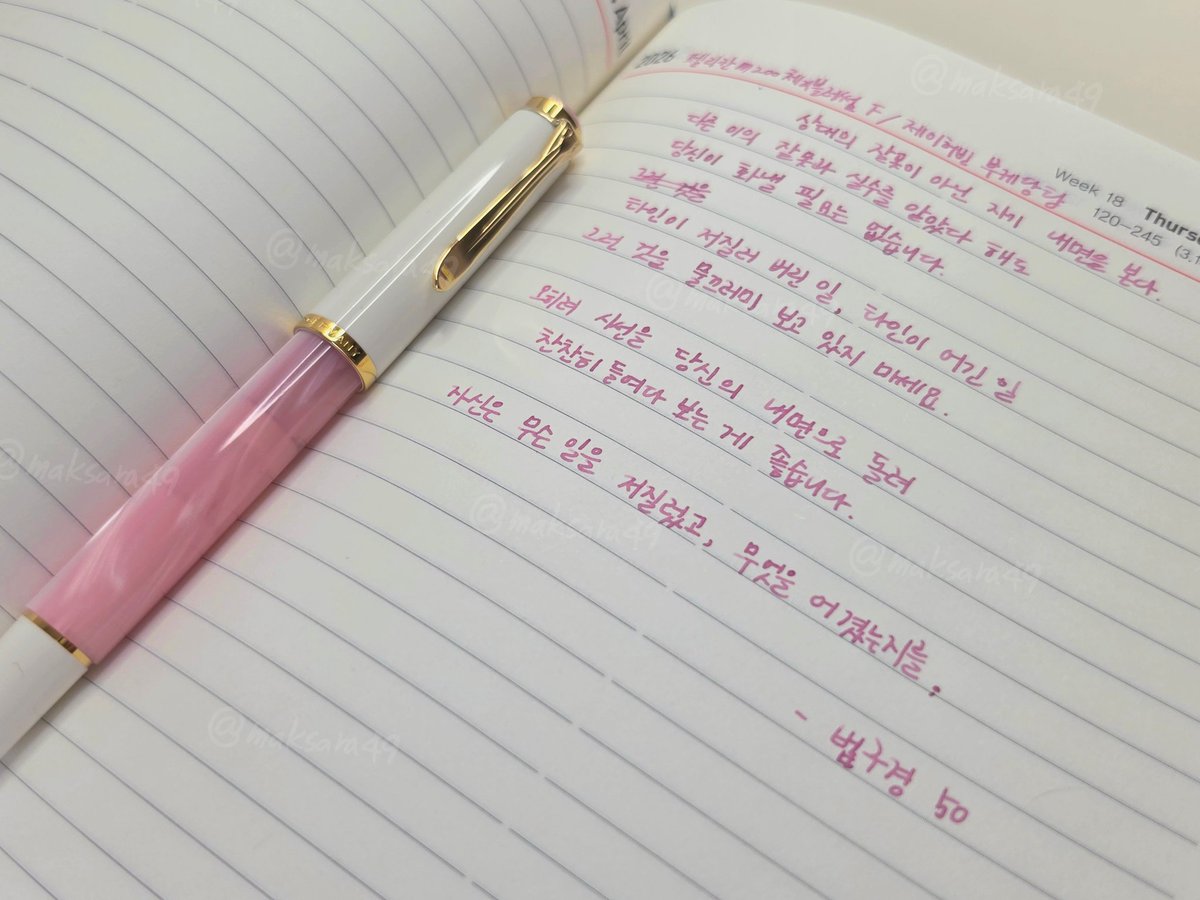 April
2026 펠리칸 m200 파스텔 F / 제이허빈 부게당
Week 18 Thurs
120–245 (3.1
상대의 잘못이 아닌 자기 내면을 본다.
다른 이의 잘못과 실수를 알았다 해도
당신이 화낼 필요는 없습니다.
그런 것을
타인이 저질러 버린 일, 타인이 어긴 일
그런 것을 물끄러미 보고 있지 마세요.
외려 시선을 당신의 내면으로 돌려
찬찬히 들여다 보는 게 좋습니다.
자신은 무슨 일을 저질렀고, 무엇을 어겼는지를.
- 법구경 50
GERMANY
@maksara49
@maksara49
@maksara49
@maksara49
@maksara49
@maksara49
@maksara49